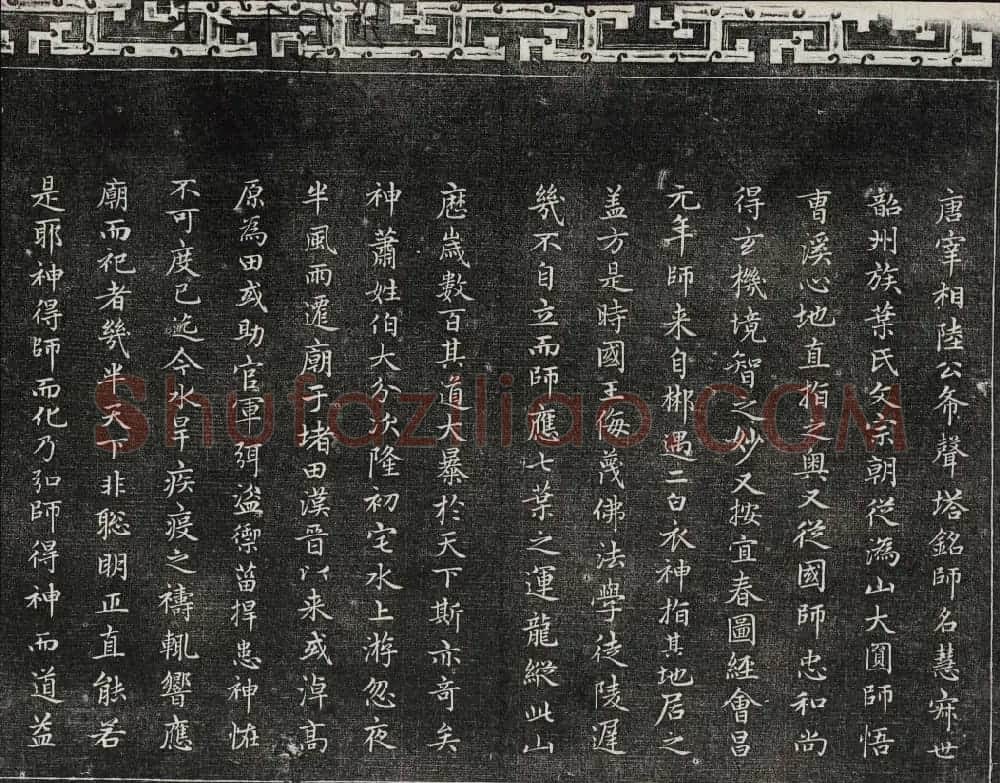 唐宰相陸公希聲塔銘師名慧寂世
韶州族葉氏父宗朝從溈山大圓師悟
曹溪心地直指之奧又從國師忠和尚
得玄機境智之妙又按宜春圖經會昌
元年師来自郴遇二白衣神指其地居之
盖方是時國王侮蔑佛法學徒陵遲
幾不自立而師應七葉之運龍縱此山
歷歲數百其道大暴於天下斯亦奇矣
神蕭姓伯大分次隆初宅水上游忽夜
半風雨遷廟于堵田漢晉以来或淖高
原為田或助官軍弭盗禦菑捍患神怪
不可度已迄今水旱疾疫之禱輒響應
廟而祀者幾半天下非聦明正直能若
是耶神得師而化乃知師得神而道益
Shufaziliao.COM